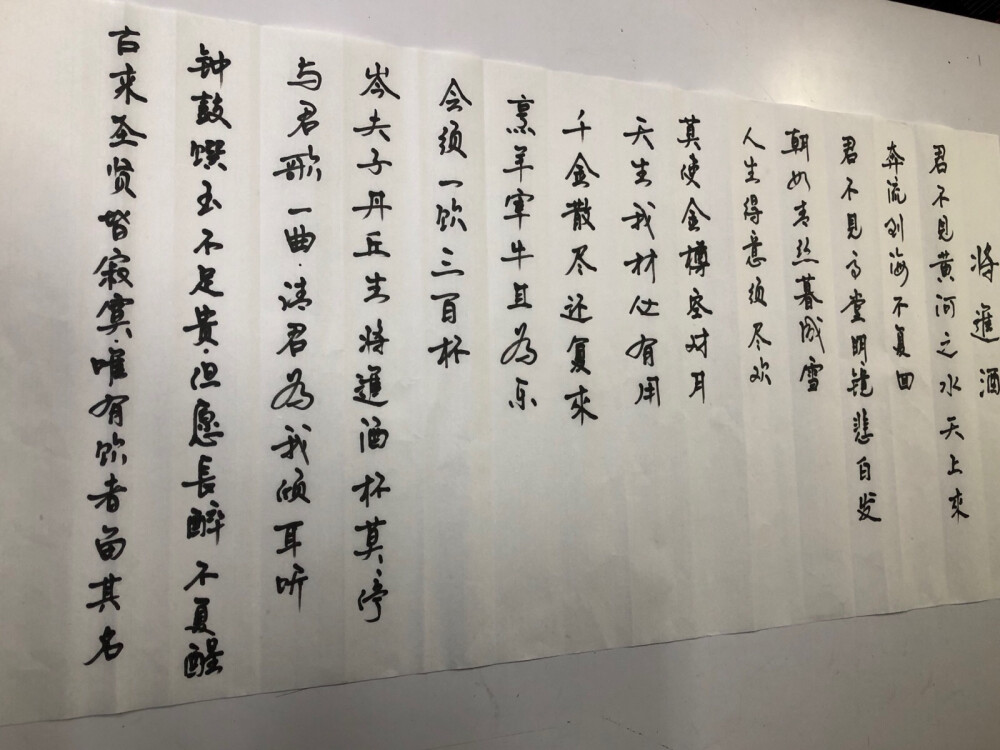 将進酒
君不见黄河之水天上來
奔流到海不复回
君不见高堂明镜悲白发
朝如青丝暮成雪
人生得意须尽欢
莫使金樽空对月
天生我材必有用
千金散尽还复來
烹羊宰牛且为乐
会须一饮三百杯
岑夫子丹丘生将進酒杯莫停
与君歌一曲请君为我倾耳听
钟鼓馔玉不足贵但愿長醉不复醒
古來圣贤皆寂寞唯有饮者留其名